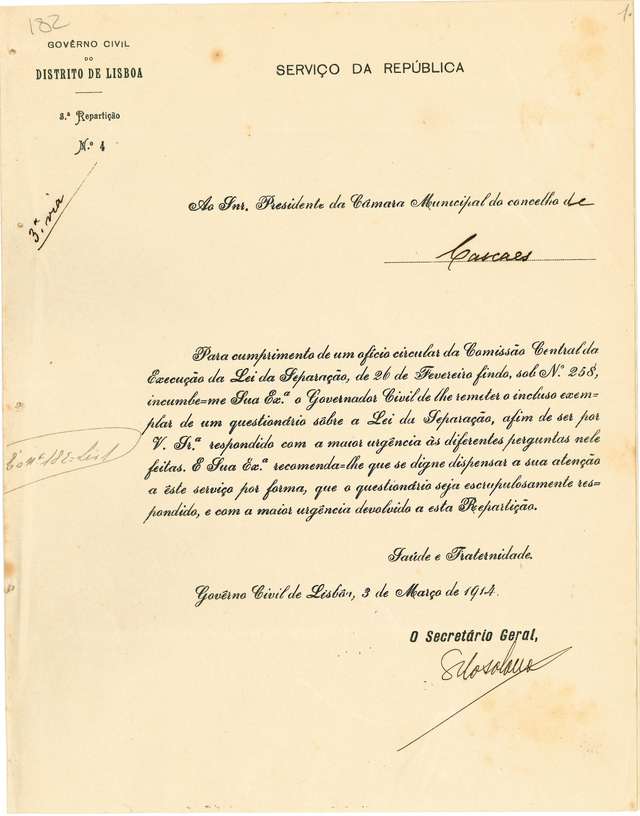 182
1.
GOVÊRNO CIVIL
DO
DISTRITO DE LISBOA
3.ª Repartição
N.º 4
3.ª via
SERVIÇO DA REPÚBLICA
Ao Snr. Presidente da Câmara Municipal do concelho de
Cascaes
Para cumprimento de um ofício circular da Comissão Central da
Execução da Lei da Separação, de 26 de Fevereiro findo, sob N.º 258,
incumbe=me Sua Ex.ª o Governador Civil de lhe remeter o incluso exem-
plar de um questionário sôbre a Lei da Separação, afim de ser por
V. Sr.ª respondido com a maior urgência às diferentes perguntas nele
feitas. E Sua Ex.ª recomenda=lhe que se digne dispensar a sua atenção
a êste serviço por forma, que o questionário seja escrupulosamente res-
pondido, e com a maior urgência devolvido a esta Repartição.
182
Saúde e Fraternidade.
Govêrno Civil de Lisbôa, 3 de Março de 1914.
O Secretário Geral,